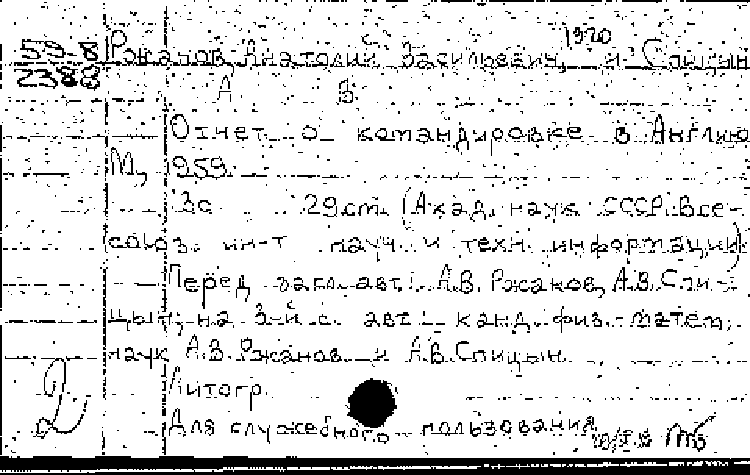 1920
59-8 Ржанов, Анатолий Васильевич, и Спицын
2388
А В
Отчет о командировке в Англию
М, 1959.
30 29 см. (Акад. наук СССР. Все-
союз. ин-т науч. и техн. информации)
Перед загл. авт.: А.В. Ржанов, А.В. Спи-
цын, на 3-й с. авт.: канд. физ.-матем.
наук А.В. Ржанов и А.В. Спицын
Литогр.
2 Для служебного пользования